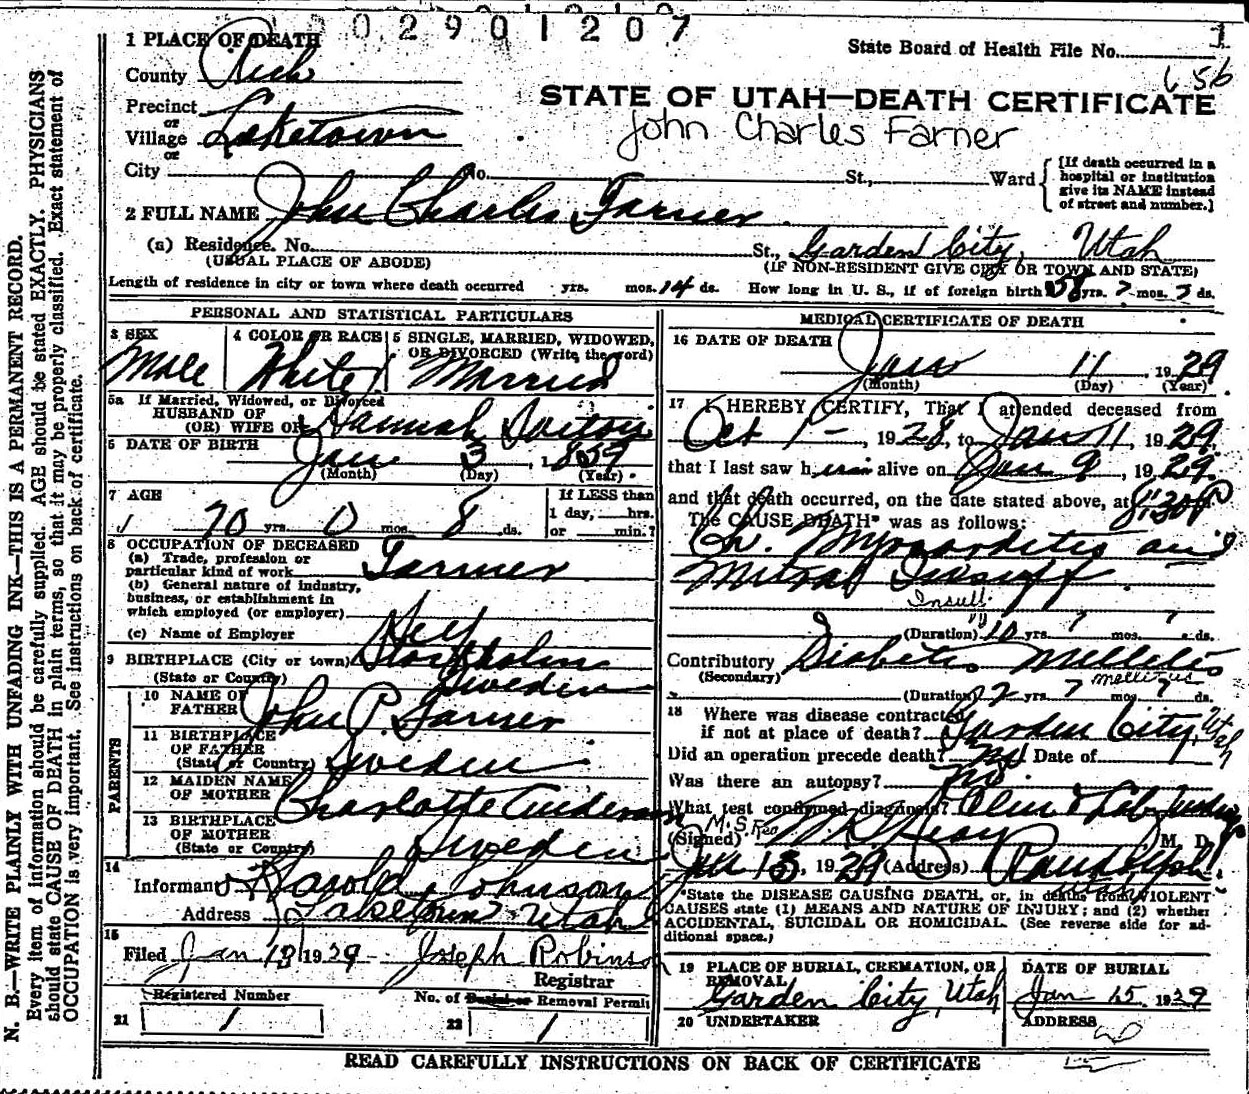 0 2 9 0 1 2 0 7
1 PLACE OF DEATH
State Board of Health File No. 1
County Rich
656
Precinct
or
Village Laketown
or
STATE OF UTAH—DEATH CERTIFICATE
John Charles Farner
City No. St., Ward
[If death occurred in a
hospital or institution
give its NAME instead
of street and number.]
2 FULL NAME John Charles Farner
(a) Residence. No. St., Garden City, Utah
(USUAL PLACE OF ABODE) (IF NON-RESIDENT GIVE CITY OR TOWN AND STATE)
Length of residence in city or town where death occurred yrs. mos. 14 ds. How long in U. S., if of foreign birth? 58 yrs. 7 mos. ds.
PERSONAL AND STATISTICAL PARTICULARS
3 SEX
Male
4 COLOR OR RACE
White
5 SINGLE, MARRIED, WIDOWED,
OR DIVORCED (Write the word)
Married
5a If Married, Widowed, or Divorced
HUSBAND OF
(OR) WIFE OF Hannah
6 DATE OF BIRTH Jan 3, 1859
(Month) (Day) (Year)
7 AGE
70 yrs. 0 mos. 8 ds.
If LESS than
1 day, hrs.
or min.?
8 OCCUPATION OF DECEASED
(a) Trade, profession or
particular kind of work Farmer
(b) General nature of industry,
business, or establishment in
which employed (or employer)
(c) Name of Employer
9 BIRTHPLACE (City or town) Stockholm
(State or Country) Sweden
PARENTS
10 NAME OF
FATHER John P. Farner
11 BIRTHPLACE
OF FATHER
(State or Country) Sweden
12 MAIDEN NAME
OF MOTHER Charlotte Anderson
13 BIRTHPLACE
OF MOTHER
(State or Country) Sweden
14
Informant Harold Johnson
Address Laketown Utah
15
Filed Jan 13 1929 Joseph Robinson
Registrar
Registered Number
21 1
No. of Burial or Removal Permit
22 1
MEDICAL CERTIFICATE OF DEATH
16 DATE OF DEATH
Jan 11, 1929
(Month) (Day) (Year)
17 I HEREBY CERTIFY, That I attended deceased from
Oct 1 -, 1928, to Jan 11, 1929.
that I last saw him alive on Jan 9, 1929.
and that death occurred, on the date stated above, at 8:30 P
The CAUSE DEATH* was as follows:
Ch. Myocarditis and
Mitral Insuff.
Insuff
(Duration) 10 yrs. ? mos. ? ds.
Contributory Diabetes Mellitis
(Secondary) mellitus
(Duration) yrs. ? mos. ? ds.
18 Where was disease contracted
if not at place of death? Garden City, Utah
Did an operation precede death? no Date of
Was there an autopsy? no.
What test confirmed diagnosis? Clin & Lab
(Signed) M. D.
Jan 13, 1929 (Address) Randolph
Utah
*State the DISEASE CAUSING DEATH, or, in deaths from VIOLENT
CAUSES state (1) MEANS AND NATURE OF INJURY; and (2) whether
ACCIDENTAL, SUICIDAL OR HOMICIDAL. (See reverse side for ad-
ditional space.)
19 PLACE OF BURIAL, CREMATION, OR
REMOVAL
Garden City, Utah
DATE OF BURIAL
Jan 15 1929
20 UNDERTAKER
ADDRESS
READ CAREFULLY INSTRUCTIONS ON BACK OF CERTIFICATE
N. B.—WRITE PLAINLY WITH UNFADING INK—THIS IS A PERMANENT RECORD.
Every item of information should be carefully supplied. AGE should be stated EXACTLY. PHYSICIANS
should state CAUSE OF DEATH in plain terms, so that it may be properly classified. Exact statement of
OCCUPATION is very important. See instructions on back of certificate.